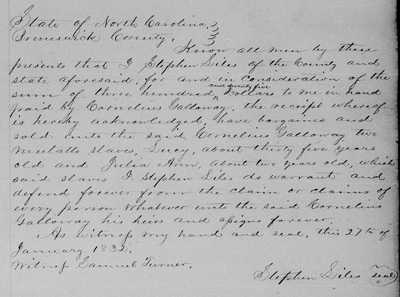 State of North Carolina
Brunswick County.
Know all men by these
presents that I Stephen Liles of the County and
state aforesaid, for and in consideration of the
and ninety five
sum of three hundred dollars to me in hand
paid by Cornelius Galloway, the receipt whereof
is hereby acknowledged, have bargained and
sold unto the said Cornelius Galloway two
Mulatto slaves, Lucy, about thirty five years
old and Julia Ann, about two years old, which
said slaves I Stephen Liles do warrant and
defend forever from the claim or claims of
every person whatever unto the said Cornelius
Galloway his heirs and assigns forever.
As witness my hand and seal, this 27th of
January 1832.
Witness Samuel Turner.
Stephen Liles (seal)